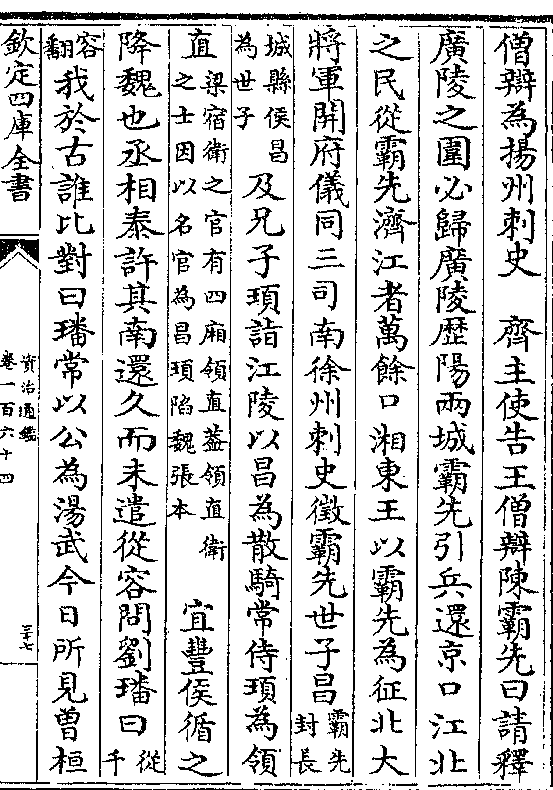 僧辯為揚州刺史　齊主使告王僧辯陳霸先曰請釋
廣陵之圍必歸廣陵歴陽兩城霸先引兵還京口江北
之民從霸先濟江者萬餘口湘東王以霸先為征北大
將軍開府儀同三司南徐州刺史徵霸先世子昌霸先
封長
城縣侯昌
為世子及兄子頊詣江陵以昌為散騎常侍頊為領
直梁宿衛之官有四廂領直蓋領直衛
之士因以名官為昌頊陷魏張本　宜豐侯循之
降魏也丞相泰許其南還久而未遣從容問劉璠曰從
千
容
翻我於古誰比對曰璠常以公為湯武今日所見曾桓
欽定四庫全書
資治通鑑
卷一百六十四
三十七